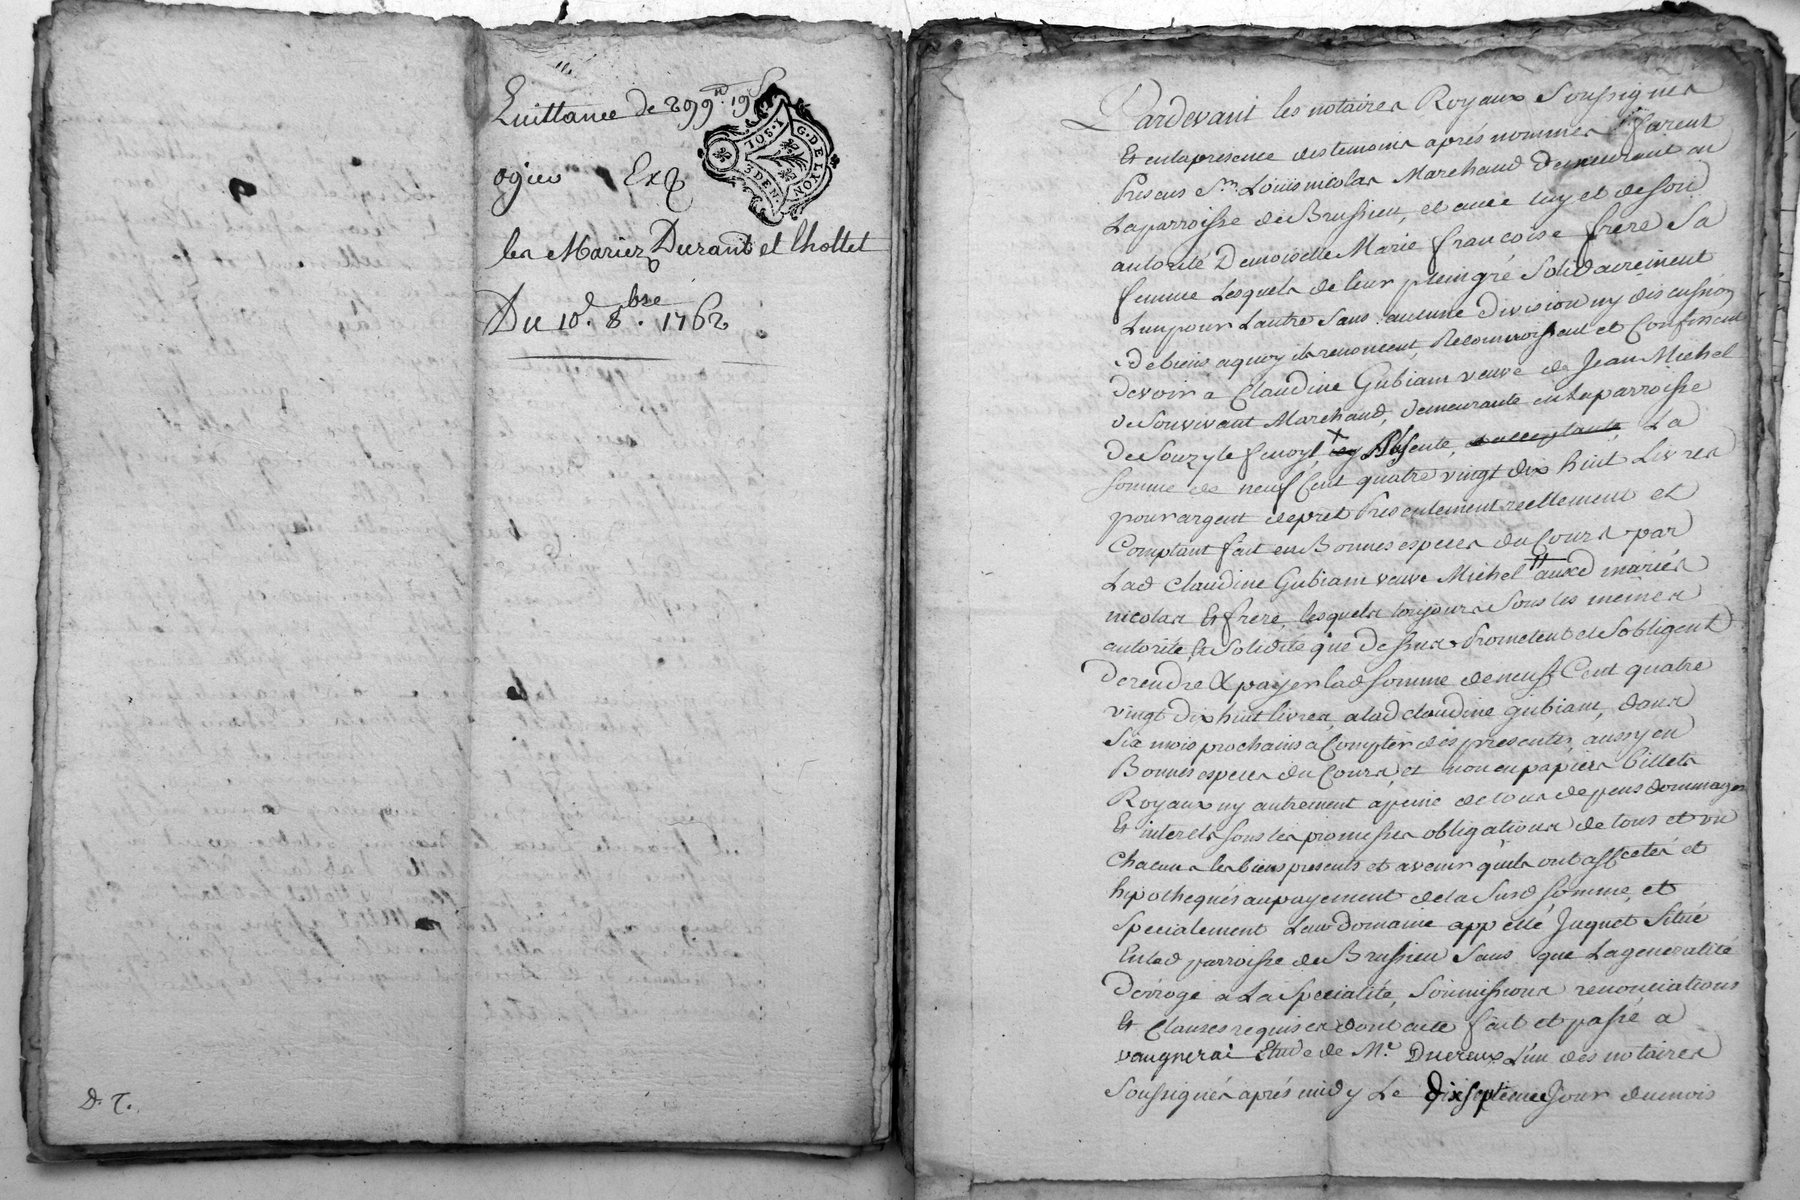 Quittance de 299ᵗᵗ 19ˢ
TOS·I
G·DE LYON
3 DEN.
ogier Exp
les Mariez Durand et Chollet
Du 10.ᵉ 8.ᵇʳᵉ 1762
D. T.
Pardevant les notaires Royaux Soussignés
Et en la presence des temoins aprés nommés furent
Presens Sʳ Louis nicolas Marchand demeurant en
La parroisse de Brussieu, et avec luy et de son
autorité Demoiselle Marie francoise frere Sa
femme Lesquels de leur plein gré Solidairement
L'un pour L'autre Sans aucune division ny discussion
de biens a quoy ils renoncent, Reconnoissent et Confessent
devoir a Claudine Gubian veuve de Jean Michel
de Son vivant Marchand, demeurante en La parroisse
de Souzy le Presente, acceptante, La
Somme de neuf Cent quatre vingt dix huit Livres
pour argent de pret Presentement reellement et
Comptant fait en Bonnes especes du Cours par
Lad Claudine Gubian veuve Michel auxd mariés
nicolas Et frere, lesquels toujours Sous les mêmes
autorité, & Solidité que dessus Promettent et S'obligent
de rendre & payer lad Somme de neuf Cent quatre
vingt dix huit livres, a lad claudine gubian, dans
Six mois prochains a Compter des presentes, aussy en
Bonnes especes du Cours, et non en papiers billets
Royaux ny autrement a peine de tous depens dommages
Et interets sous les promesses obligations de tous et un
Chacuns les biens presents et avenir qu'ils ont affectés et
hipothequés au payement de la Susd Somme, et
Specialement Leur domaine appellé Juquet Situé
En lad parroisse de Brussieu Sans que La generalité
deroge a La Specialité, Soumissions renonciations
Et Clauses requises dont acte fait et passé a
vaugnerai Etude de Mᵉ Ducreux L'un des notaires
Soussignés aprés midy Le dix septieme Jour du mois